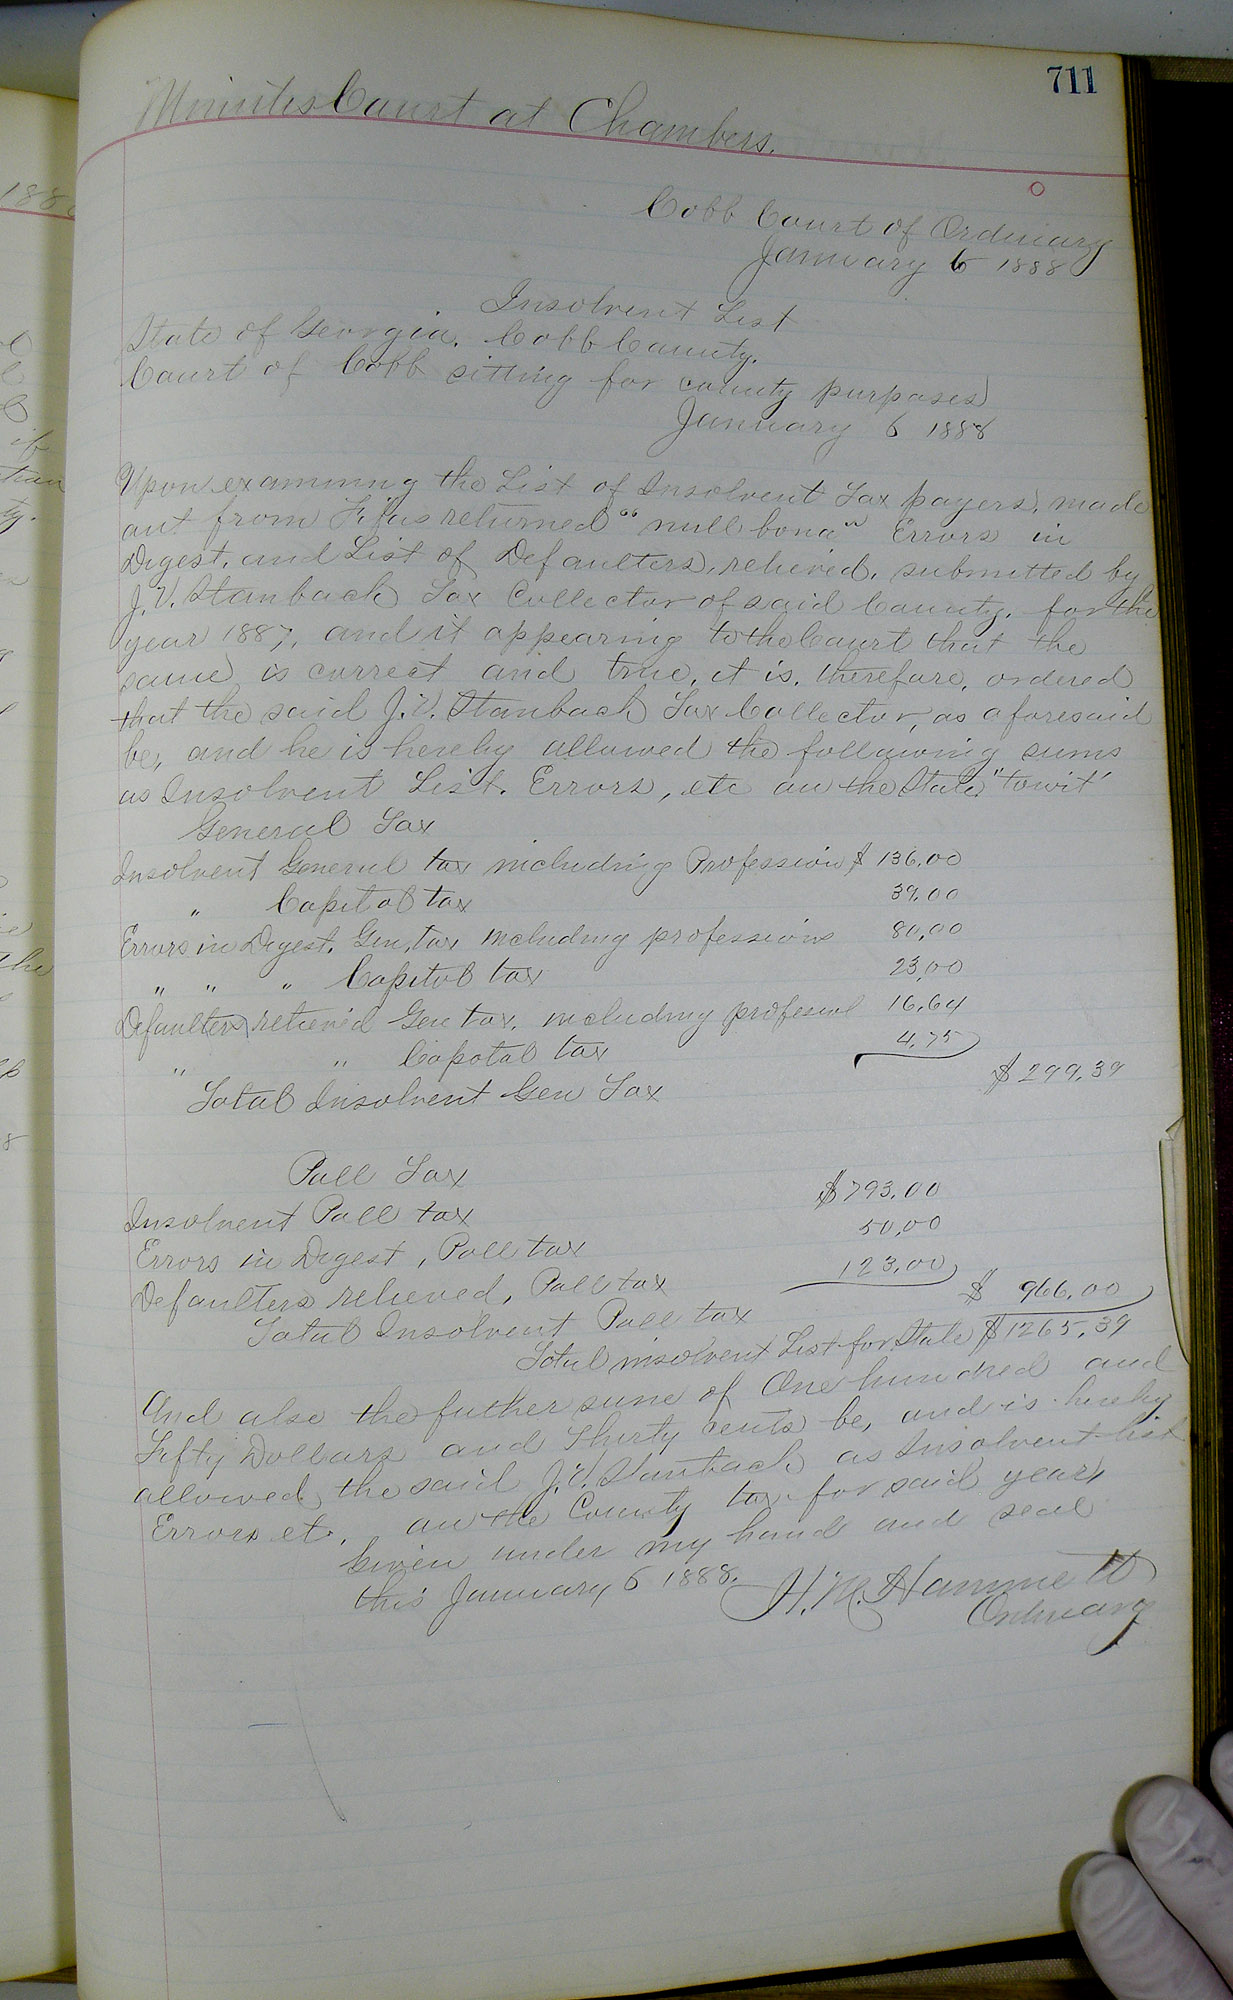 711
Minutes Court at Chambers.
Cobb Court of Ordinary
January 6 1888
Insolvent List
State of Georgia. Cobb County.
Court of Cobb sitting for county purposes
January 6 1888
Upon examining the List of Insolvent Tax payers, made
out from Fi fas returned "null bona" Errors in
Digest, and List of Defaulters, relieved, submitted by
J. V. Stanback Tax Collector of said County, for the
year 1887, and it appearing to the Court that the
same is correct and true, it is, therefore, ordered
that the said J. V. Stanback Tax Collector, as aforesaid
be, and he is hereby allowed the following sums
as Insolvent List, Errors, etc on the State, "towit"
General Tax
Insolvent General tax including Profession $ 136.00
" Capitol tax 39.00
Errors in Digest, Gen, tax including professions 80.00
" " " Capitol tax 23,00
Defaulters relieved Gen tax, including profesional 16.64
" " Capotal tax 4.75
Total Insolvent Gen Tax $ 299.39
Poll Tax
Insolvent Poll tax $793.00
Errors in Digest, Poll tax 50,00
Defaulters relieved, Poll tax 123,00
Total Insolvent Poll tax $ 966.00
Total insolvent List for State $1265.39
And also the futher sume of One hundred and
Fifty Dollars and Thirty cents be, and is hereby
allowed, the said J. V. Stanback as Insolvent list
Errors et, on the County tax for said year,
Given under my hand and seal
this January 6 1888.
H. M. Hammett
Ordinary